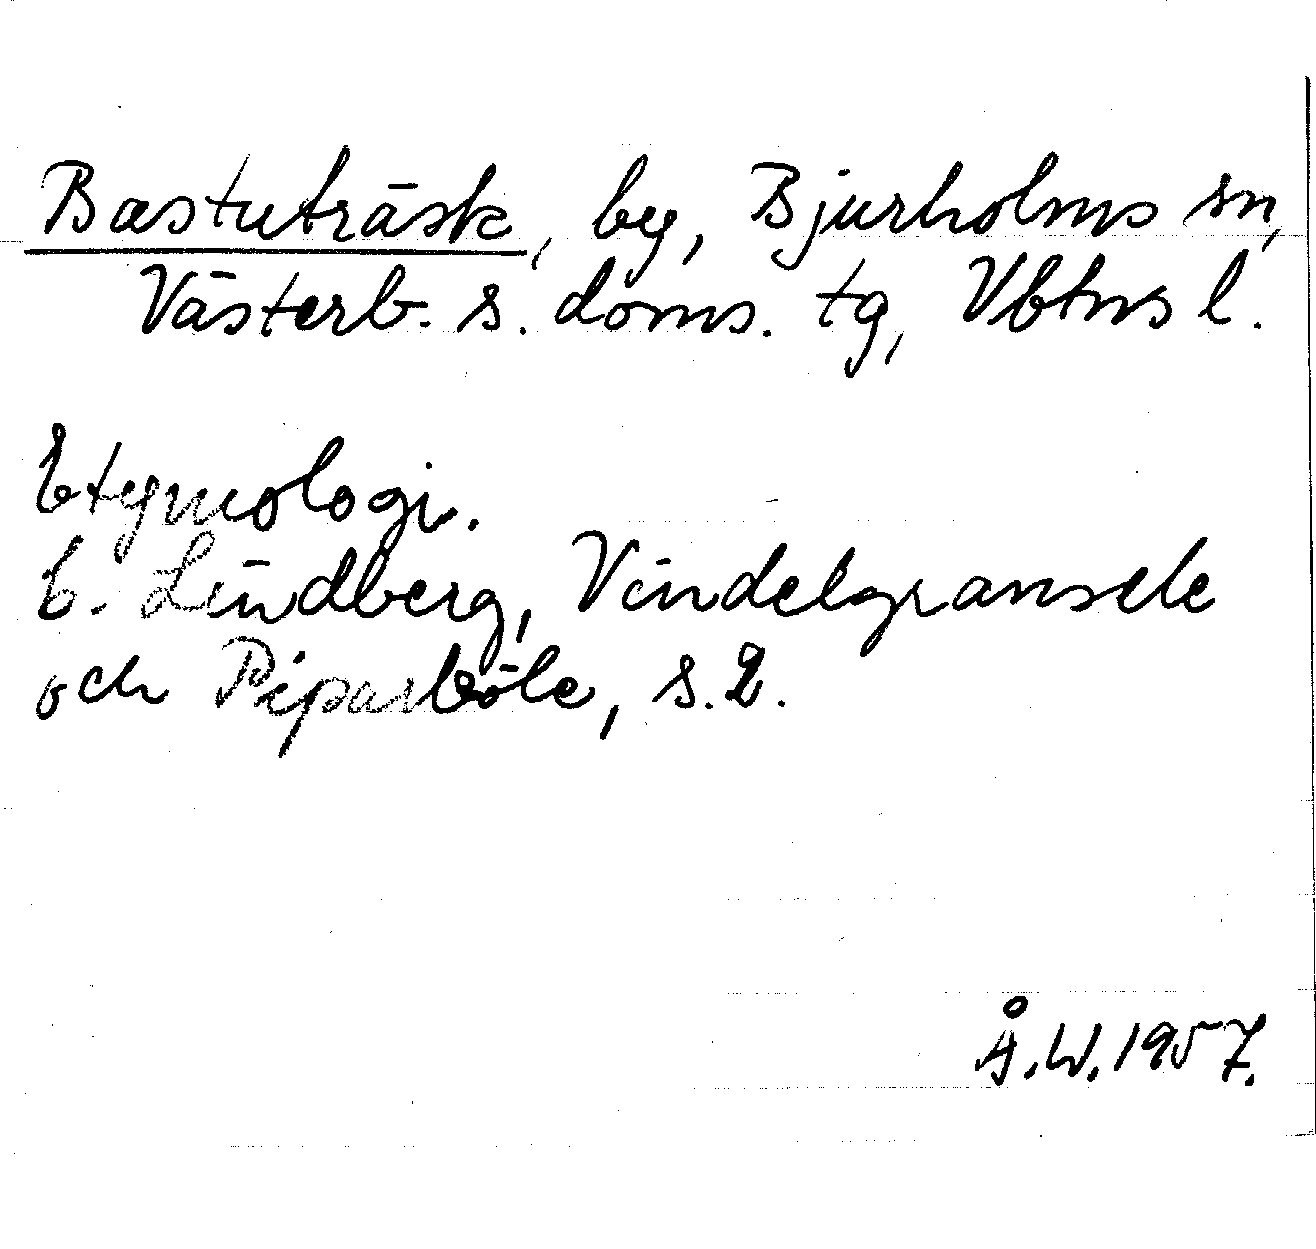 Bastuträsk, by, Bjurholms sn,
Västerb. s. doms. tg, Vbtns l.
Etymologi.
E. Lindberg, Vindelgransele
och Piparböle, s. 2.
Å.W. 1957.